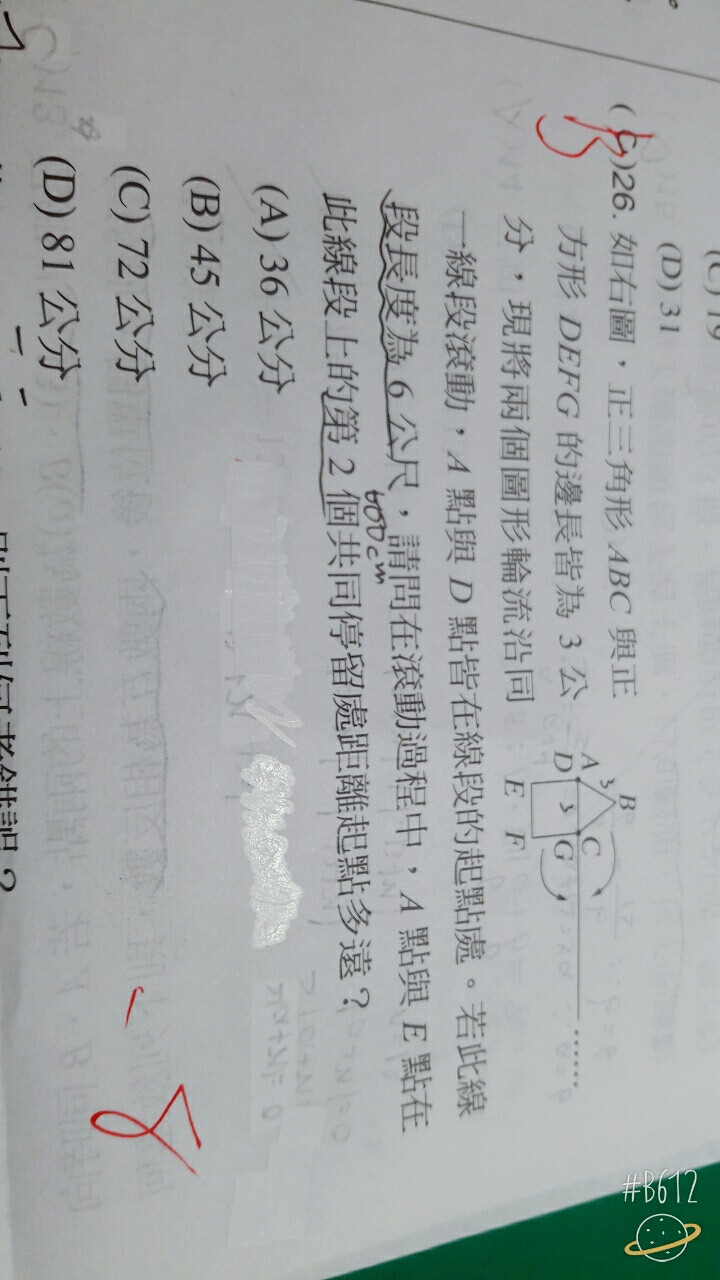 (C) 19
(D) 31
( C )26. 如右圖，正三角形 ABC 與正
方形 DEFG 的邊長皆為 3 公
分，現將兩個圖形輪流沿同
一線段滾動，A 點與 D 點皆在線段的起點處。若此線
段長度為 6 公尺，請問在滾動過程中，A 點與 E 點在
600cm
此線段上的第 2 個共同停留處距離起點多遠？
B
A 3 C
D 3 G
E F
……
(A) 36 公分
(B) 45 公分
(C) 72 公分
(D) 81 公分
#B612